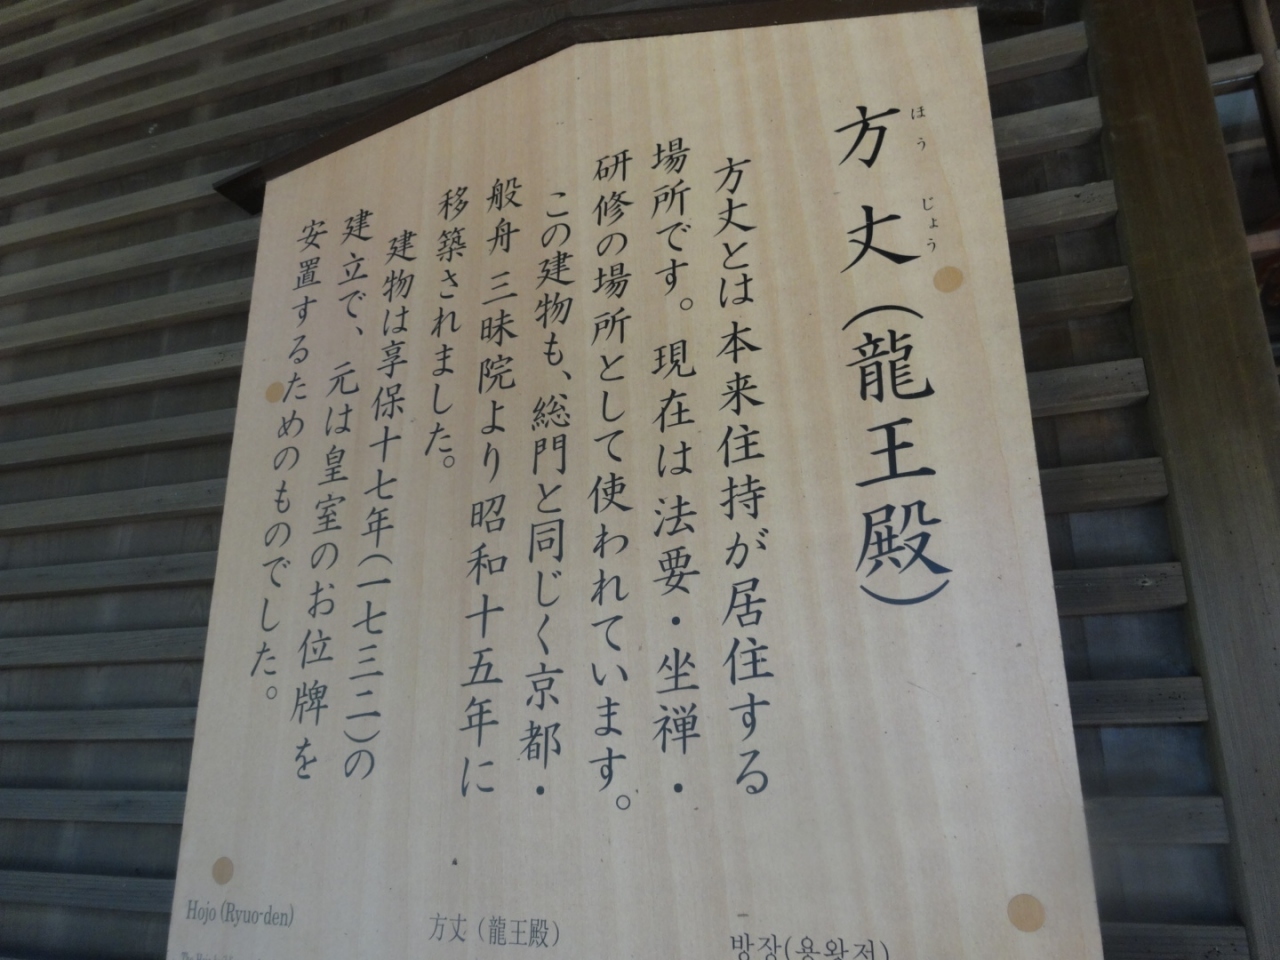 方丈(龍王殿)
ほうじょう
方丈とは本来住持が居住する
場所です。現在は法要・坐禅・
研修の場所として使われています。
この建物も、総門と同じく京都・
般舟三昧院より昭和十五年に
移築されました。
建物は享保十七年(一七三二)の
建立で、元は皇室のお位牌を
安置するためのものでした。
Hojo (Ryuo-den)
方丈(龍王殿)
방장(용왕전)